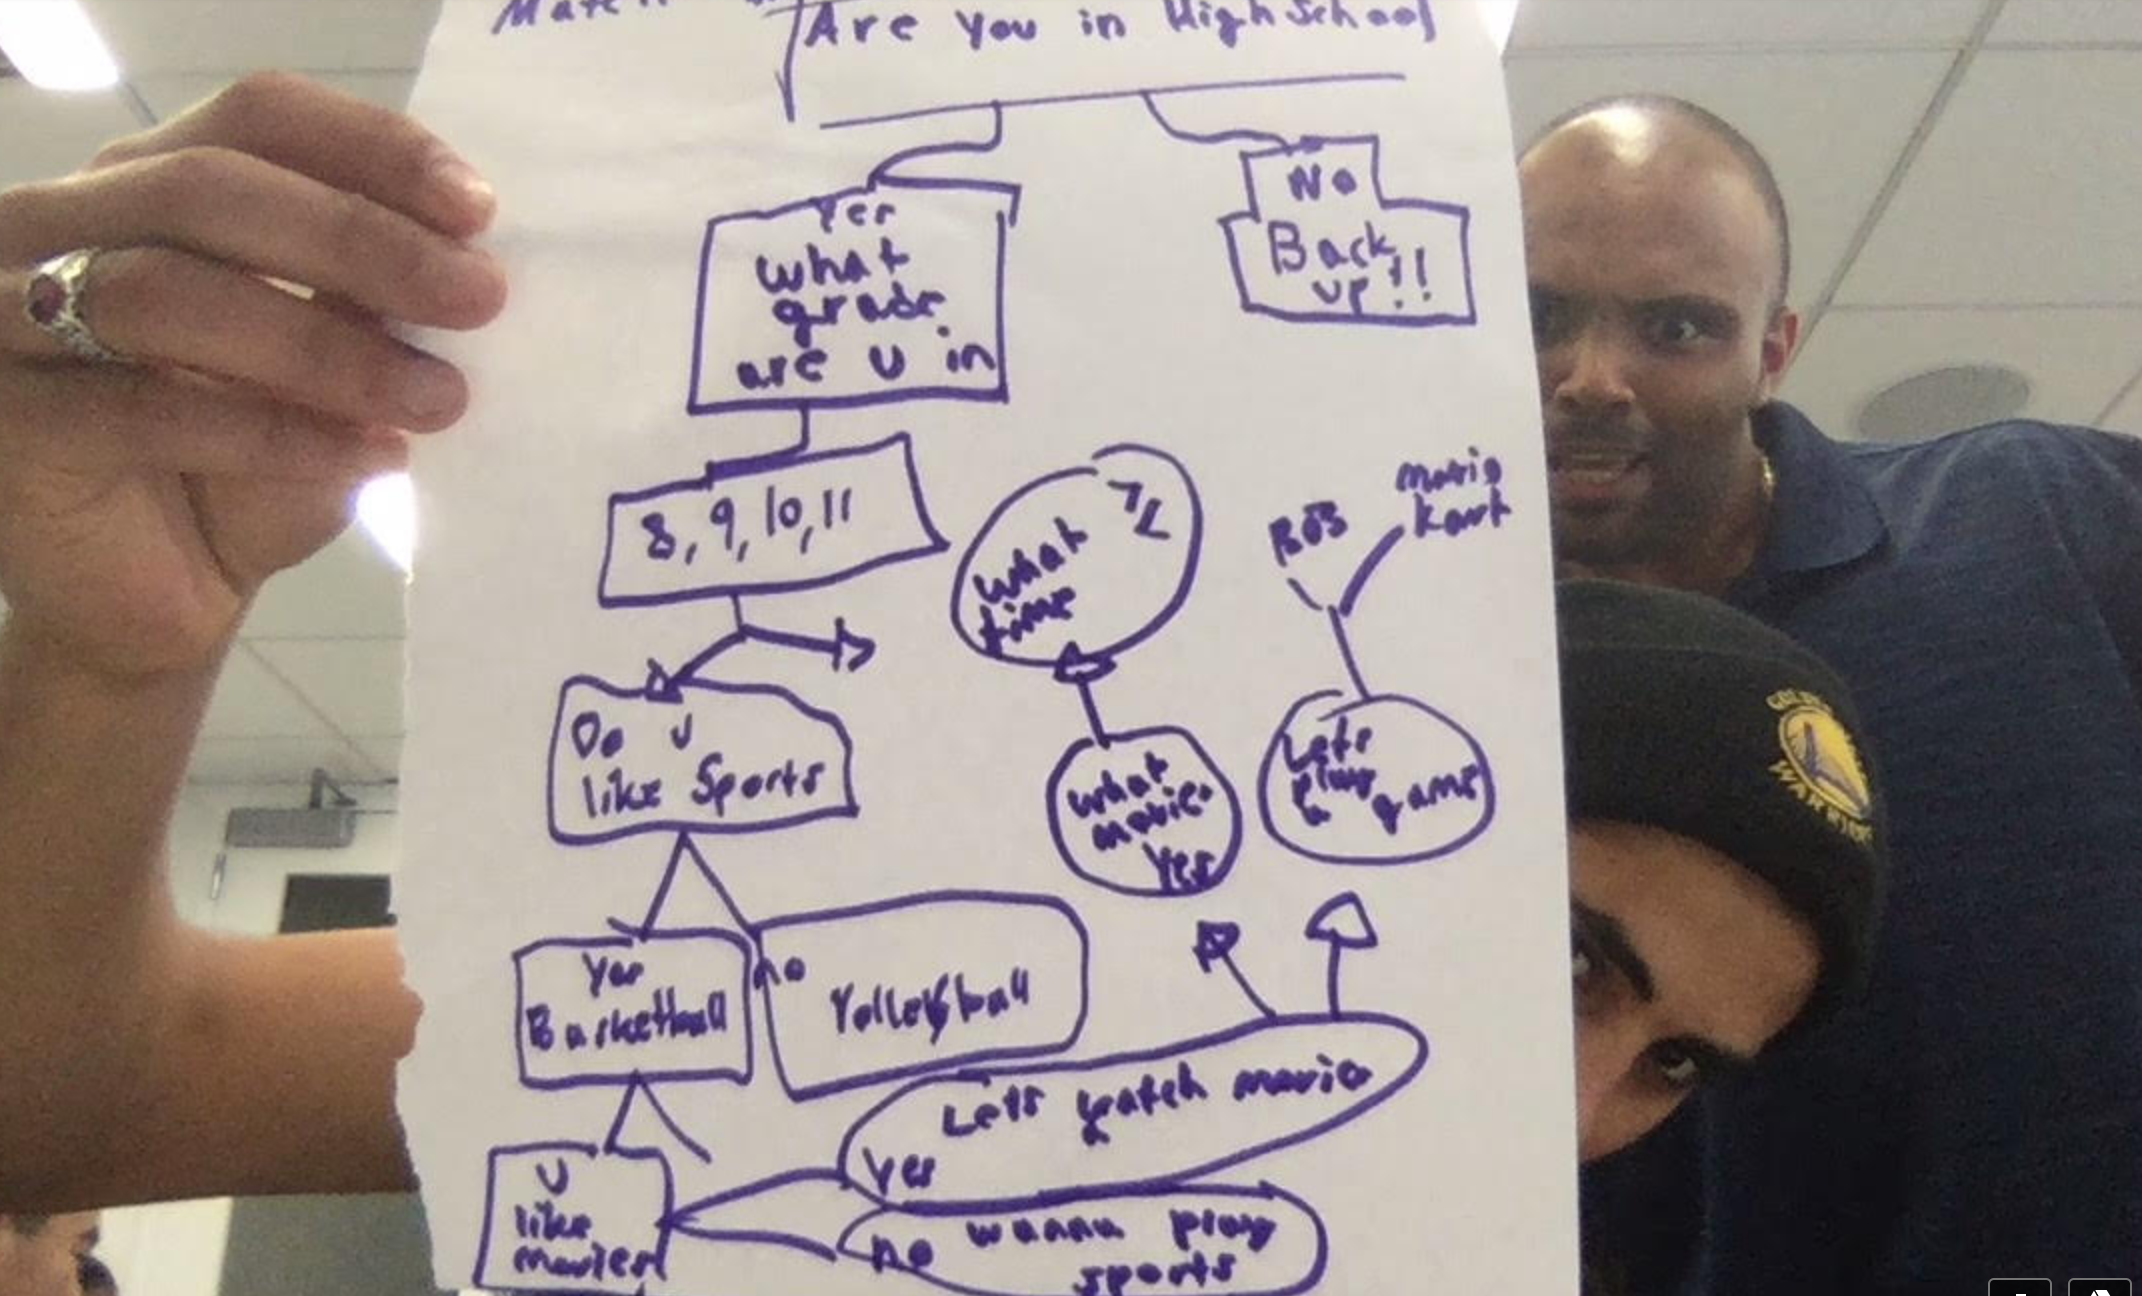 Are you in High School
Yes
what
grade
are u in
No
Back
up!!
8, 9, 10, 11
what
time
mario
kart
Do u
like Sports
what
movie
Yes
Lets
play
a game
Yes
Basketball
no
Volleyball
Lets watch movie
Yes
U
like
movies
no wanna play
sports
GOLDEN
WARRIORS